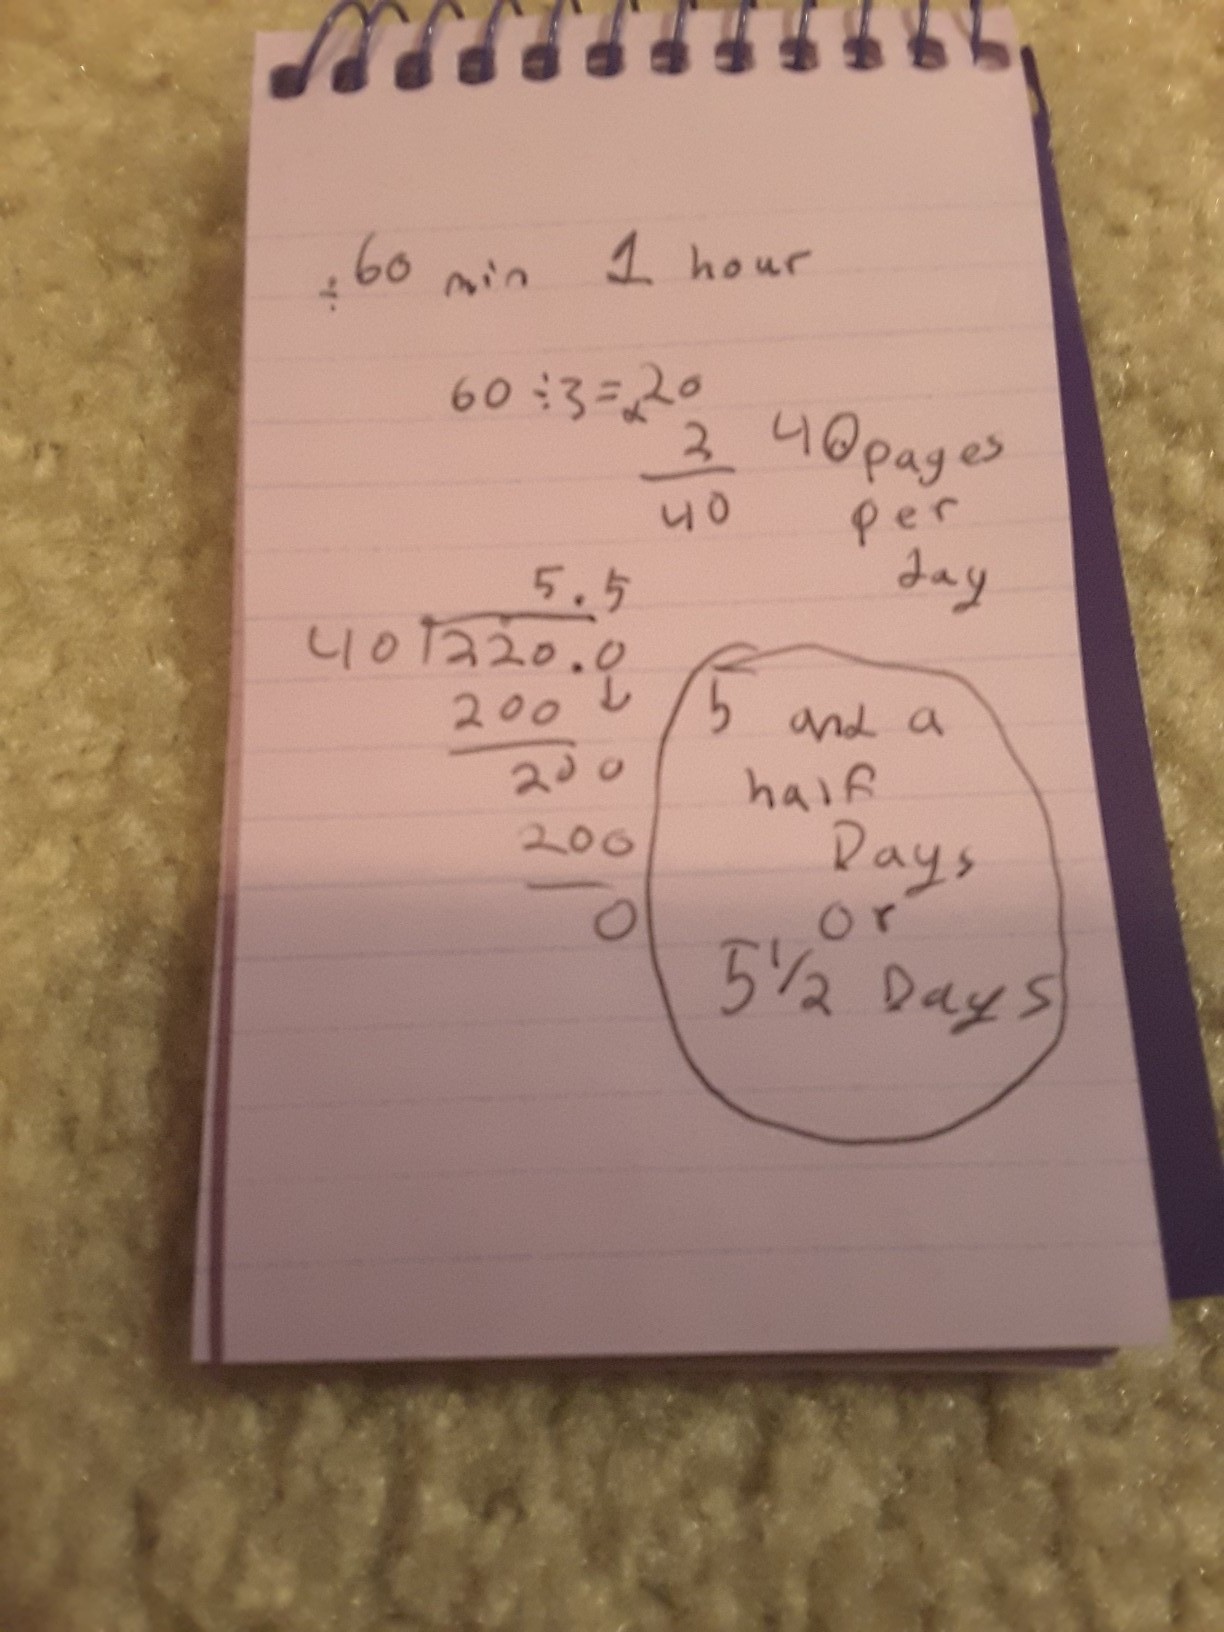 ÷60 min 1 hour
60÷3=20
x2
40
40 pages
per
day
5.5
40 220.0
200 ↓
200
200
0
5 and a
half
Days
or
5 1/2 Days